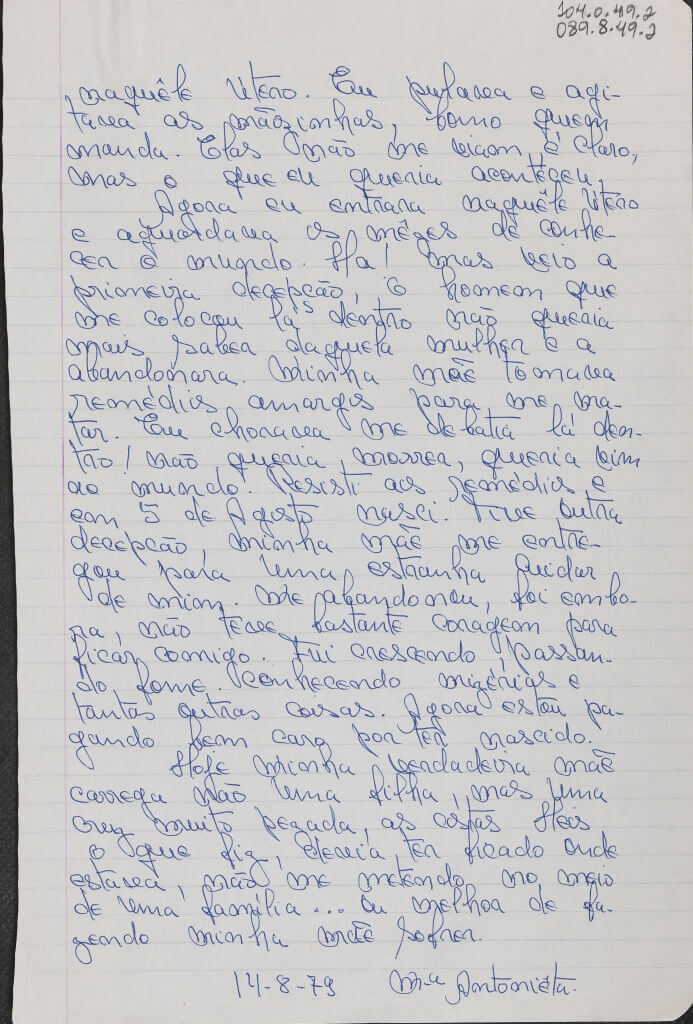 104.0.49.2
089.8.49.2
naquêle útero. Eu pulava e agi-
tava as mãozinhas, como quem
manda. Elas não me viam, é claro,
mas o que eu queria aconteceu.
Agora eu entrara naquêle útero
e aguardava os mêzes de conhe-
cer o mundo. Ha! mas veio a
primeira decepção, o homem que
me colocou lá dentro não queria
mais saber daquela mulher e a
abandonara. Minha mãe tomava
remédios amargos para me ma-
tar. Eu chorava me debatia lá den-
tro! não queria morrer, queria vim
ao mundo. Resisti aos remédios e
em 5 de Agosto nasci. Tive outra
decepção, minha mãe me entre-
gou para uma estranha cuidar
de mim. Me abandonou, foi embo-
ra, não teve bastante coragem para
ficar comigo. Fui crescendo, passan-
do fome. conhecendo mizérias e
tantas outras coisas. Agora estou pa-
gando bem caro por ter nascido.
Hoje minha verdadeira mãe
carrega não uma filha, mas uma
cruz muito pezada, as costas Heis
o que fiz, devia ter ficado onde
estava, não me metendo no meio
de uma família... ou melhor de fa-
zendo minha mãe sofrer.
14-8-79 Mª Antoniêta.